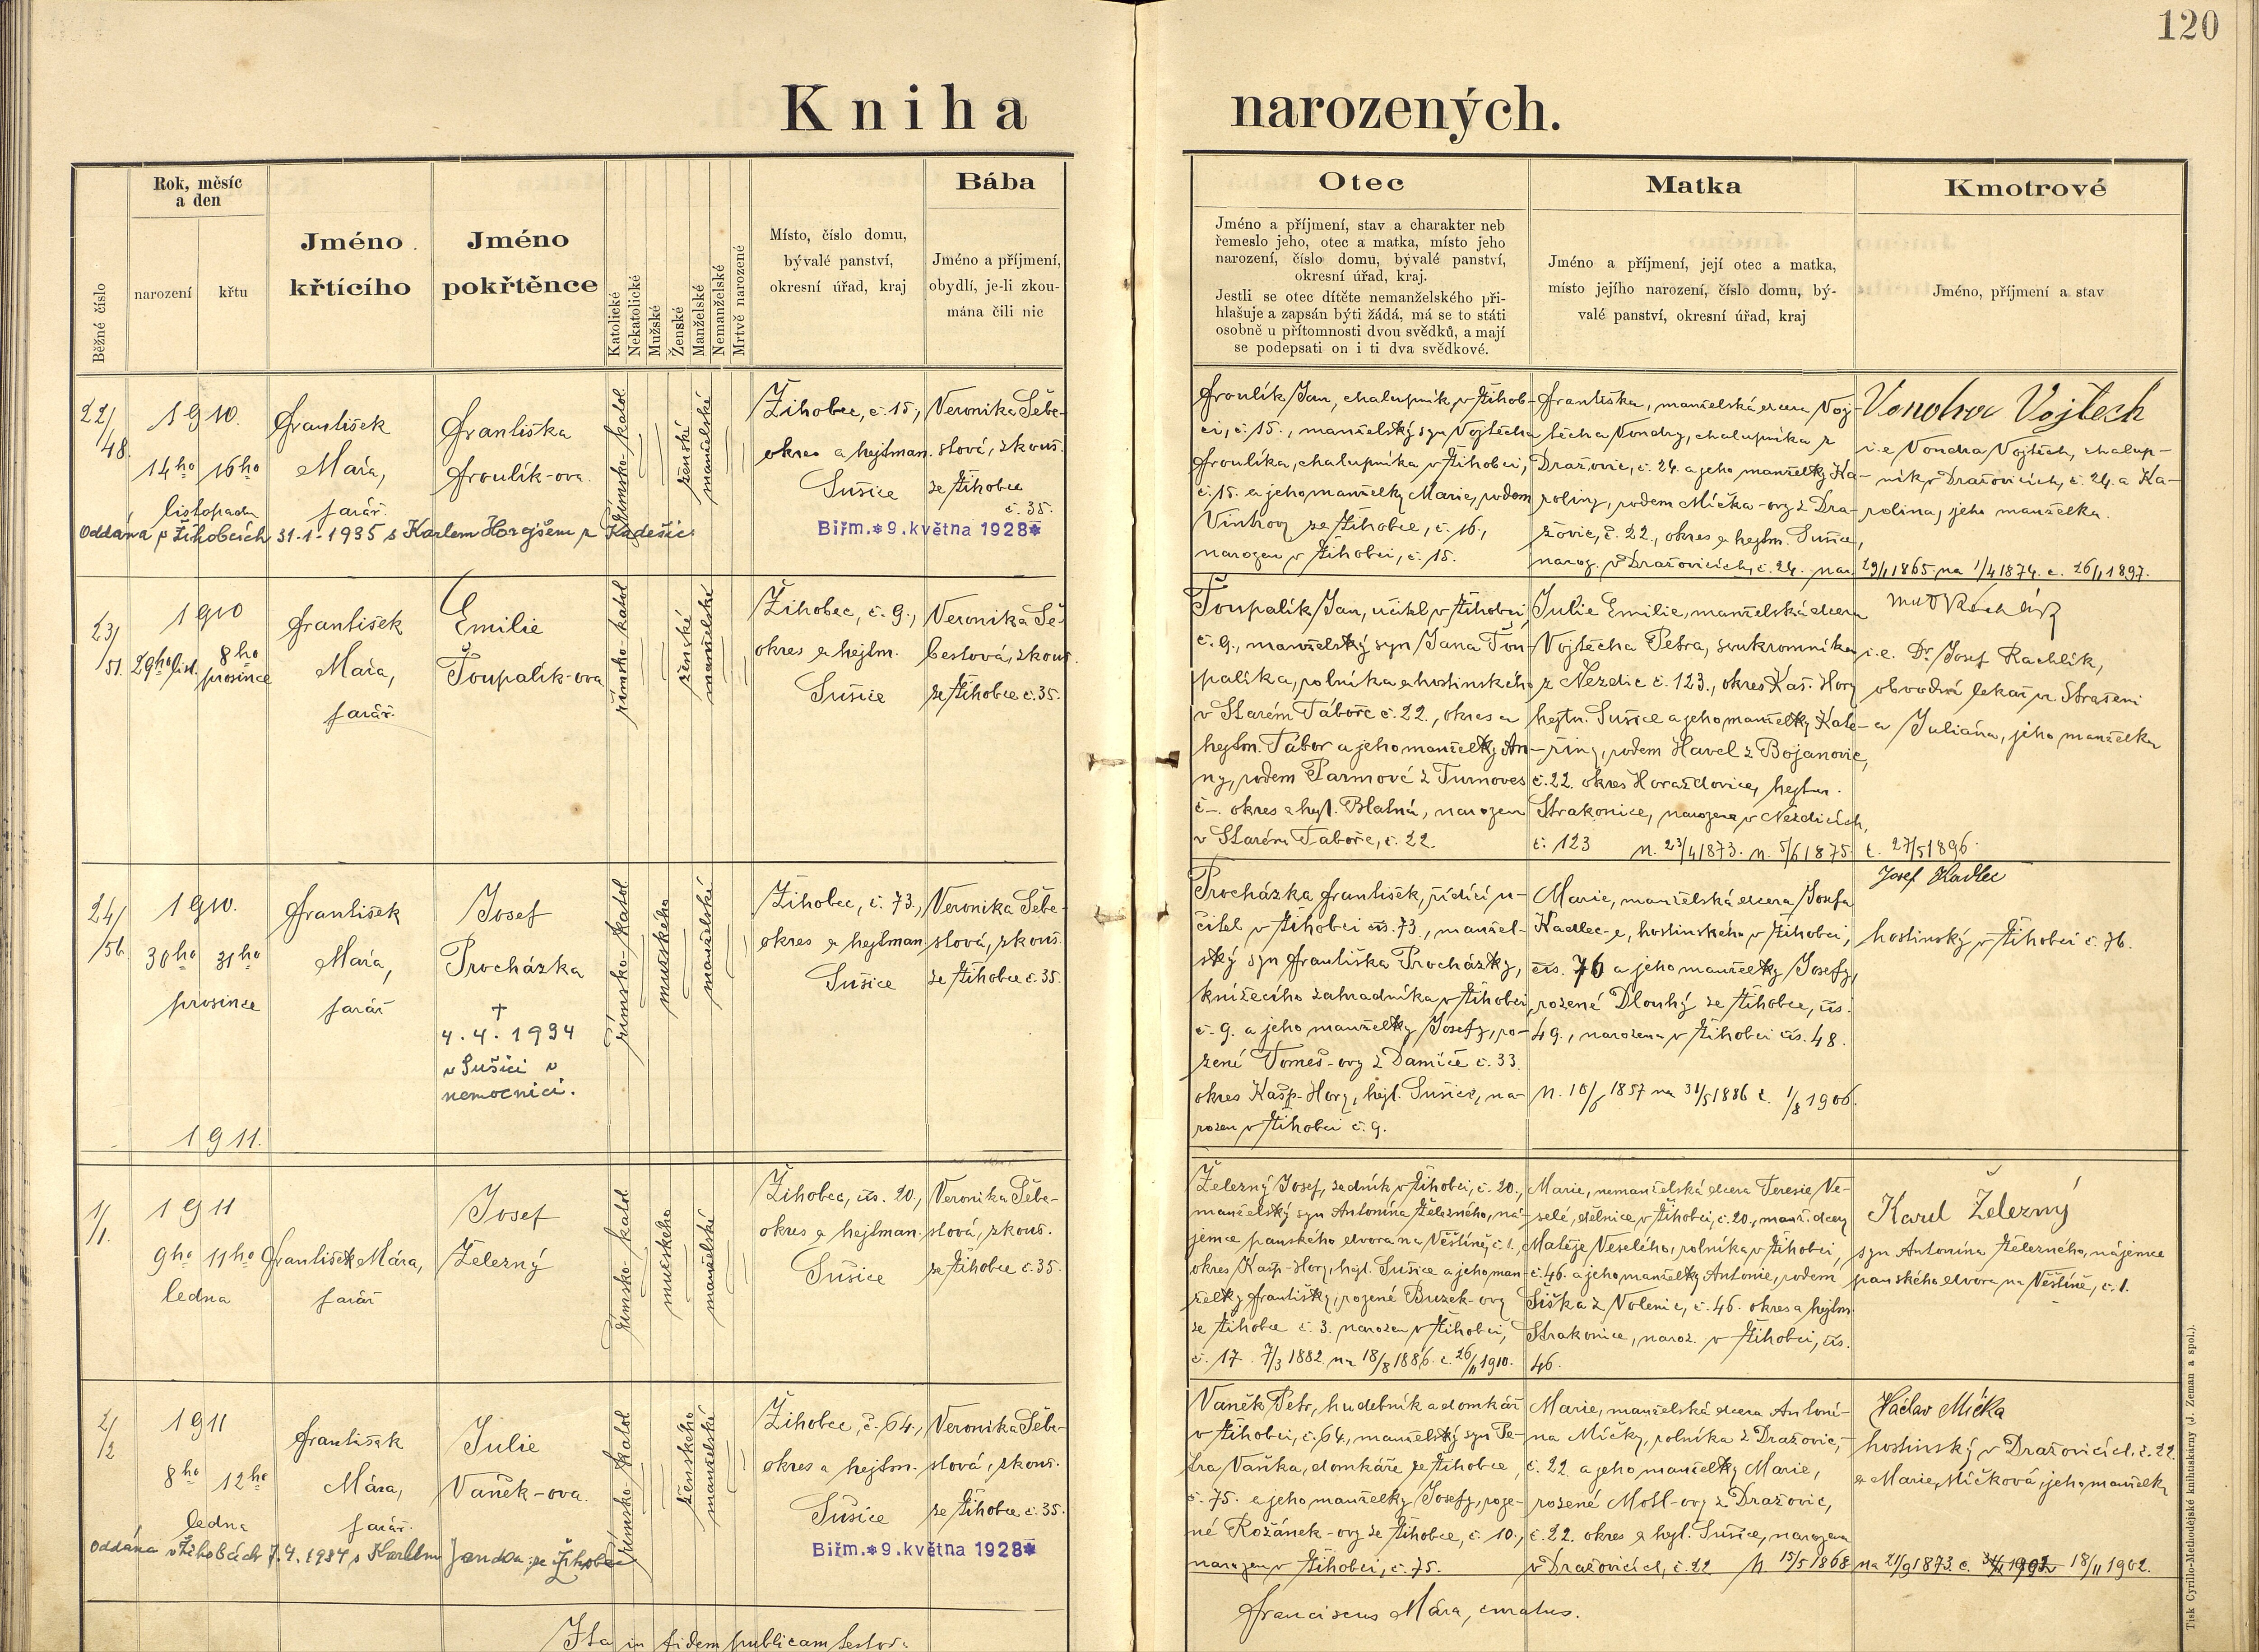 120
Kniha narozených.
Běžné číslo
Rok, měsíc
a den
narození
křtu
Jméno
křtícího
Jméno
pokřtěnce
Katolické
Nekatolické
Mužské
Ženské
Manželské
Nemanželské
Mrtvě narozené
Místo, číslo domu,
bývalé panství,
okresní úřad, kraj
Bába
Jméno a příjmení,
obydlí, je-li zkou-
mána čili nic
Otec
Jméno a příjmení, stav a charakter neb
řemeslo jeho, otec a matka, místo jeho
narození, číslo domu, bývalé panství,
okresní úřad, kraj.
Jestli se otec dítěte nemanželského při-
hlašuje a zapsán býti žádá, má se to státi
osobně u přítomnosti dvou svědků, a mají
se podepsati on i ti dva svědkové.
Matka
Jméno a příjmení, její otec a matka,
místo jejího narození, číslo domu, bý-
valé panství, okresní úřad, kraj
Kmotrové
Jméno, příjmení a stav
22/48.
1910.
14ho 16ho
listopadu
František
Mára,
farář.
Františka
Froulík-ova.
římsko-katol.
ženské
manželské
Žihobec, č. 15,
okres a hejtman.
Sušice
Veronika Šebe-
stová, zkouš.
ze Žihobce
č. 35.
Oddána v Žihobcích 31-1-1935 s Karlem z Kadešic
Biřm. * 9. května 1928 *
Froulík Jan, chalupník v Žihob-
ci, č. 15., manželský syn Vojtěcha
Froulíka, chalupníka v Žihobci,
č. 15. a jeho manželky Marie, rodem
ze Žihobce, č. 16.,
narozen v Žihobci, č. 15.
Františka, manželská dcera Voj-
těcha Vondry, chalupníka z
Dražovic, č. 24. a jeho manželky Ka-
roliny, rodem Mička-ovy z Dra-
žovic, č. 22., okres a hejtm. Sušice,
naroz. v Dražovicích, č. 24. nar.
Vojtěch
i.e Vondra Vojtěch, chalup-
ník v Dražovicích, č. 24. a Ka-
rolina, jeho manželka.
29/1 1865 na 1/4 1874. c. 26/1 1897.
23/51.
1910
29ho list. 8ho prosince
František
Mára,
farář.
Emilie
Ťoupalík-ova
římsko-katol
ženské
manželské
Žihobec, č. 9.,
okres a hejtm.
Sušice
Veronika Še-
bestová, zkouš.
ze Žihobce č. 35.
Ťoupalík Jan, učitel v Žihobci,
č. 9., manželský syn Jana Ťou-
palíka, rolníka a hostinského
v Starém Táboře č. 22., okres a
hejtm. Tábor a jeho manželky An-
ny, rodem Parmové z
č -. okres a hejt. Blatná, narozen
v Starém Táboře, č. 22.
Julie Emilie, manželská dcera
Vojtěcha Petra, soukromníka
z Nezdic č. 123., okres Kaš. Hory
hejtm. Sušice a jeho manželky Kate-
řiny, rodem Havel z Bojanovic,
č. 22. okres Horažďovice, hejtm.
Strakonice, narozena v Nezdicích,
č. 123 n. 23/4 1873. n. 5/6 1875.
i.e. Dr Josef Rachlík,
obvodní lekař ve Strašeni
a Juliána, jeho manželka
c. 27/5 1896.
24/56
1910.
30ho 31ho
prosince
František
Mára,
farář
Josef
Procházka
†
4. 4. 1934
v Sušici v
nemocnici.
římsko-katol
mužského
manželské
Žihobec, č. 73,
okres a hejtman
Sušice
Veronika Šebe-
stová, zkouš.
ze Žihobce č. 35.
Procházka František, řídící u-
čitel v Žihobci čís. 73, manžel-
ský syn Františka Procházky,
knížecího zahradníka v Žihobci
č. 9. a jeho manželky Josefy, ro-
zené Tomeš-ovy z Damíče č. 33.
okres Kašp-Hory, hejt. Sušice, na-
rozen v Žihobci č. 9.
Marie, manželská dcera Josefa
Kadlec-e, hostinského v Žihobci,
čís. 76 a jeho manželky Josefy,
rozené Dlouhý ze Žihobce, čís.
49., narozena v Žihobci čís. 48.
n. 10/6 1857 na 31/5 1886 c. 1/8 1906.
Josef Kadlec
hostinský v Žihobci č. 76.
1911.
1/1.
1911
9ho 11ho
ledna
František Mára,
farář
Josef
Železný
římsko-katol
mužského
manželské
Žihobec, čís. 20.,
okres a hejtman.
Sušice
Veronika Šebe-
stová, zkouš.
ze Žihobce č. 35.
Železný Josef, sedník v Žihobci, č. 20.,
manželský syn Antonína Železného, ná-
jemce panského dvora na Věštíně, č. 1.,
okres Kašp-Hory, hejt. Sušice a jeho man-
želky Františky, rozené Buzek-ovy
ze Žihobce č. 3. narozen v Žihobci,
č. 17. 7/3 1882. na 18/8 1886. c. 26/11 1910.
Marie, nemanželská dcera Teresie Ve-
selé, dělnice v Žihobci, č. 20., manž. dcery
Matěje Veselého, rolníka v Žihobci,
č. 46. a jeho manželky Antonie, rodem
Šiška z Volenic, č. 46. okres a hejtm.
Strakonice, naroz. v Žihobci, čís.
46.
Karel Železný
syn Antonína Železného, nájemce
panského dvora na Věštíně, č. 1.
2/2
1911
8ho 12ho
ledna
František
Mára,
farář.
Julie
Vaněk-ova.
římsko-katol
ženského
manželské
Žihobce, č. 64.,
okres a hejtm.
Sušice
Veronika Šebe-
stová, zkouš.
ze Žihobce č. 35.
Oddána v Žihobcích 7.4.1934 s Karlem Janda ze Žihobce
Biřm. * 9. května 1928 *
Vaněk Petr, hudebník a domkář
v Žihobci, č. 64, manželský syn Pe-
tra Vaňka, domkáře ze Žihobce,
č. 75. a jeho manželky Josefy, roze-
né Rožánek-ovy ze Žihobce, č. 10.,
narozen v Žihobci, č. 75.
Marie, manželská dcera Antoní-
na Mičky, rolníka z Dražovic,
č. 22. a jeho manželky Marie,
rozené Mottl-ovy z Dražovic,
č. 22. okres a hejt. Sušice, narozena
v Dražovicích, č. 22 n. 15/5 1868
Václav Mička
hostinský v Dražovicích. č. 22.
a Marie Mičková, jeho manželka
na 21/9 1873. c. 18/11 1902.
Ita in fidem publicam testor:
Franciscus Mára, curatus.
Tisk Cyrillo-Methodějské knihtiskárny (J. Zeman a spol.).